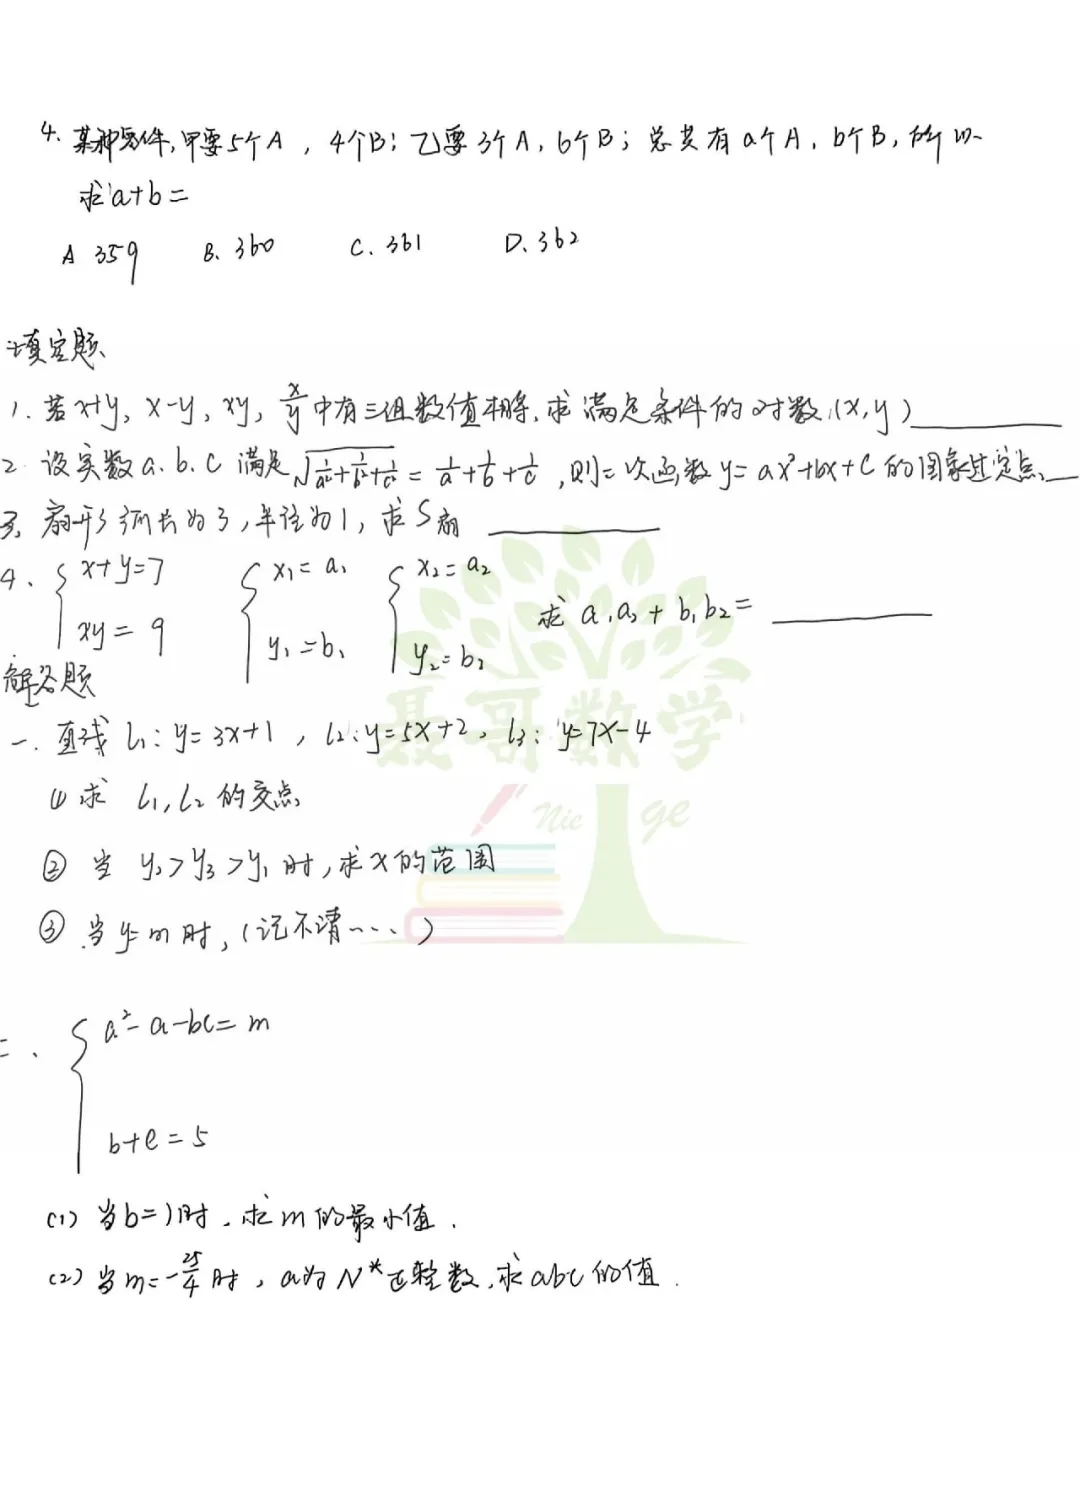 4、某种零件,甲要5个A，4个B；乙要3个A，6个B；总共有a个A，b个B，所以
求a+b=
A 359 B. 360 C. 361 D. 362
填空题
1. 若x+y, x-y, xy, x/y中有三组数值相等,求满足条件的对数(x,y)______
2. 设实数a.b.c 满足√(1/a²+1/b²+1/c²) = 1/a+1/b+1/c ,则二次函数y=ax²+bx+c的图象过定点__
3. 扇形弧长为3,半径为1,求S扇 ______
4、{x+y=7 {x₁=a₁ {x₂=a₂
xy=9 y₁=b₁ y₂=b₂ 求a₁a₂+b₁b₂=______
解答题
一. 直线 l₁: y=3x+1 , l₂: y=5x+2 , l₃: y=7x-4
① 求 l₁, l₂ 的交点
② 当 y₂>y₃>y₁ 时,求x的范围
③ 当y=m时,(记不清...)
聂哥数学
Nic ge
二、{a²-a-bc=m
b+c=5
(1) 当b=1时，求m的最小值.
(2) 当m=-25/4时，a为N*正整数,求abc的值.